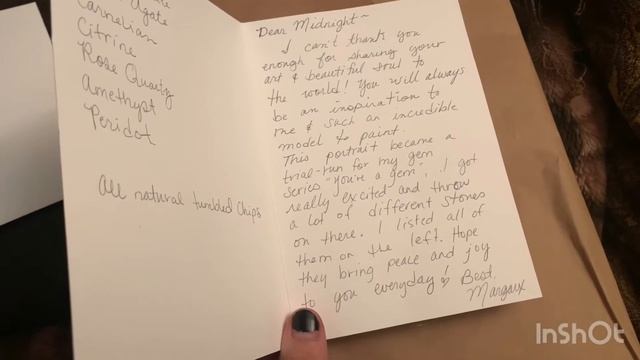 Agate
Carnelian
Citrine
Rose Quartz
Amethyst
Peridot
All natural tumbled chips
Dear Midnight~
I can't thank you
enough for sharing your
art & beautiful soul to
the world! You will always
be an inspiration to
me & such an incredible
model to paint.
This portrait became a
trial-run for my gem
series "You're a gem", I got
really excited and threw
a lot of different stones
on there. I listed all of
them on the left. Hope
they bring peace and joy
to you everyday! Best,
Margaux
InShOt